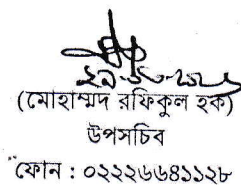 (মোহাম্মদ রফিকুল হক)
উপসচিব
ফোন : ০২২২৬৬৪১১২৮